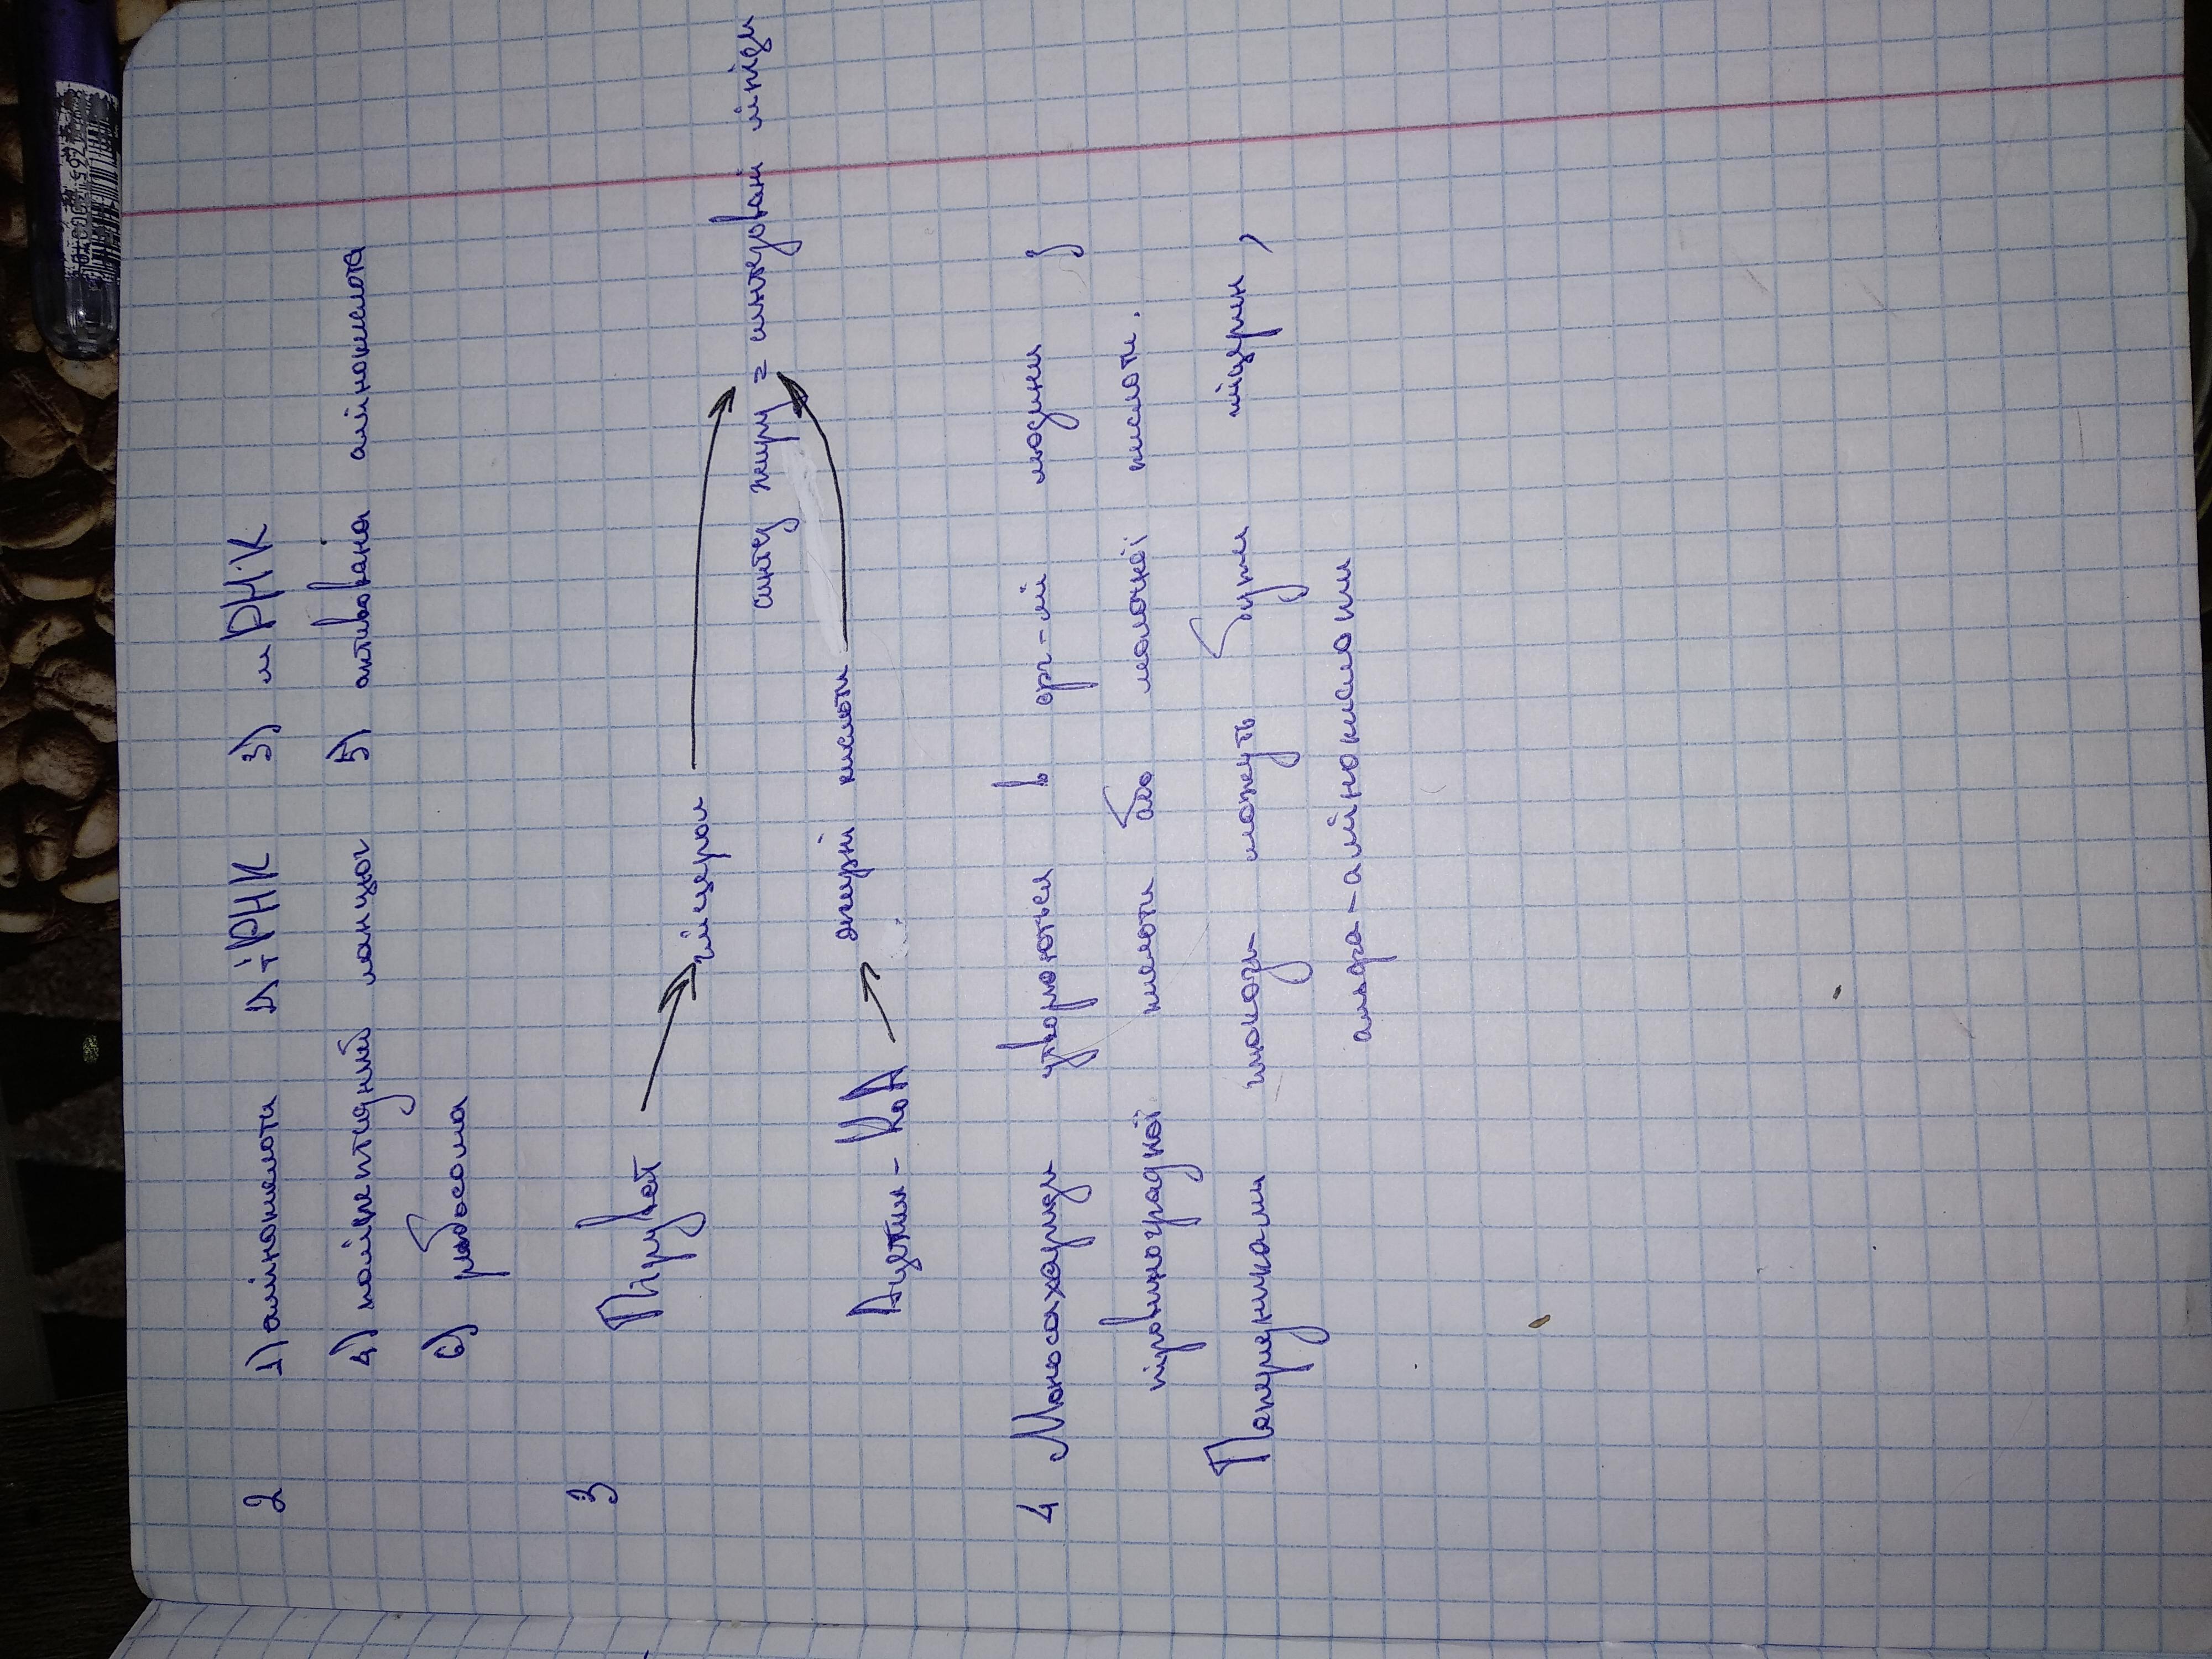 2 1) амінокислоти 2) і-РНК 3) мРНК
4) поліпептидний ланцюг 5) активована амінокислота
6) рибосома
3 Піруват → гліцерол →
синтез жиру = синтезовані ліпіди
Ацетил-КоА → жирні кислоти
4 Моносахариди утворюються в орг-мі людини з
піровиноградної кислоти або молочної кислоти.
Попередниками глюкози можуть бути гліцерин,
альфа-амінокислоти